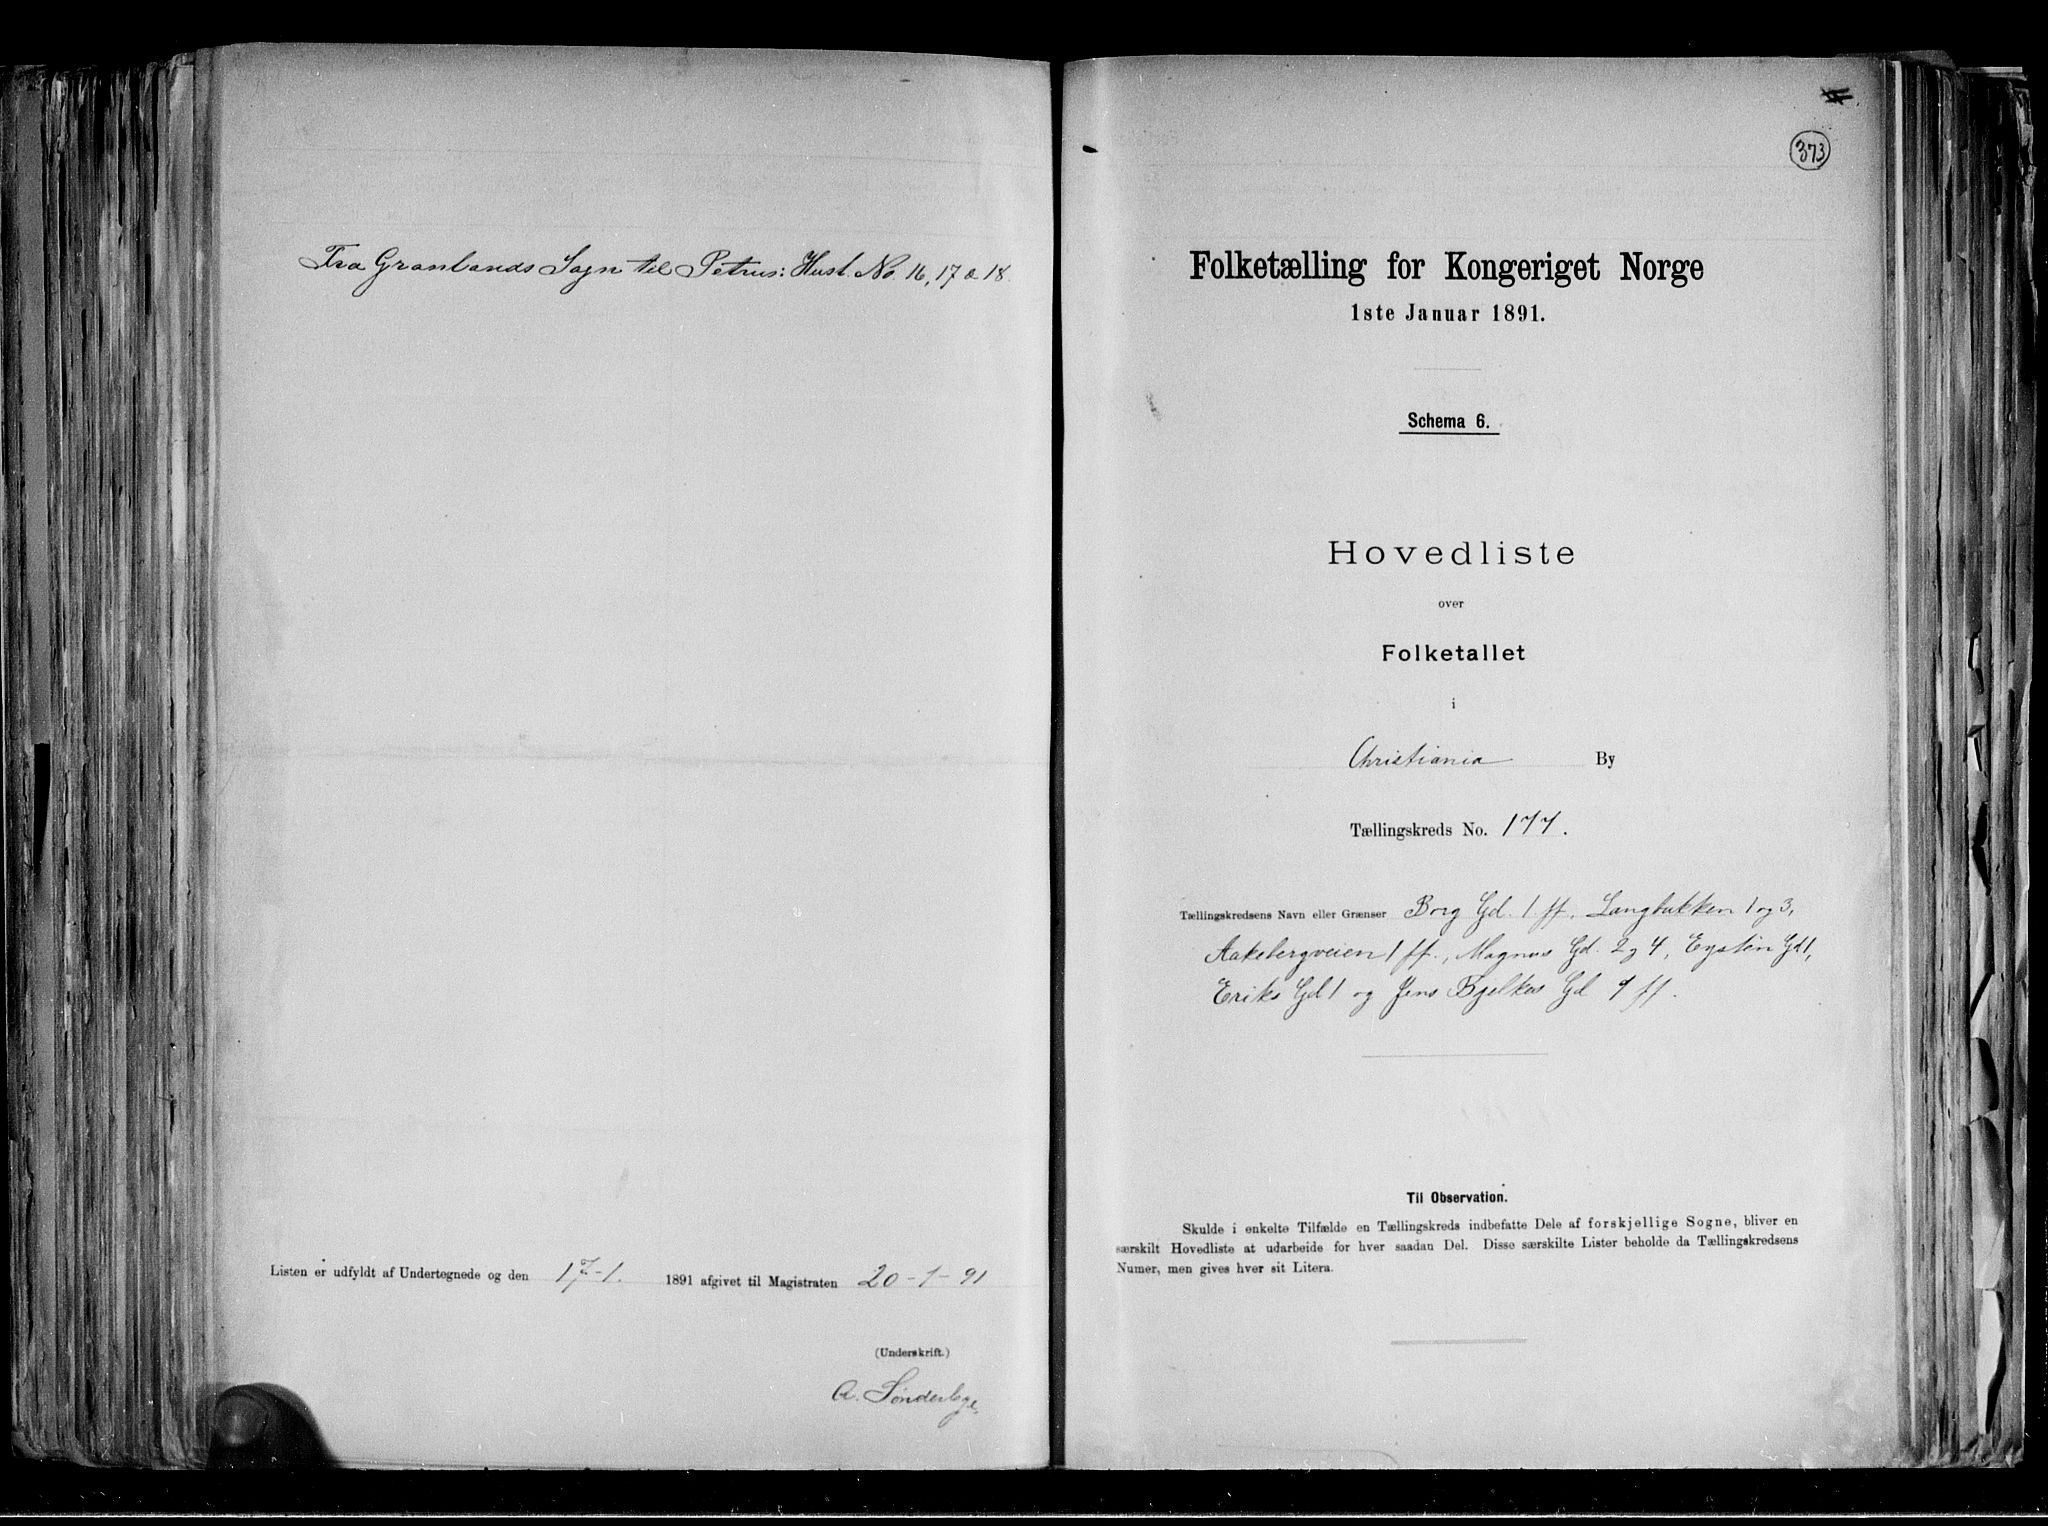 Fra Grønlands Sogn til Petrus: Husl. No. 16, 17 & 18.
Listen er udfyldt af Undertegnede og den 17-1. 1891 afgivet til Magistraten 20-1-91
(Underskrift.)
A. Sønderlage.
373
Folketælling for Kongeriget Norge
1ste Januar 1891.
Schema 6.
Hovedliste
over
Folketallet
i
Christiania By
Tællingskreds No. 177.
Tællingskredsens Navn eller Grænser Borg Gd. 1 ff., Langbakken 1 og 3,
Aakebergveien 1 ff., Magnus Gd. 2 og 4, Eystein Gd 1,
Eriks Gd 1 og Jens Bjelkes Gd 9 ff.
Til Observation.
Skulde i enkelte Tilfælde en Tællingskreds indbefatte Dele af forskjellige Sogne, bliver en
særskilt Hovedliste at udarbeide for hver saadan Del. Disse særskilte Lister beholde da Tællingskredsens
Numer, men gives hver sit Litera.